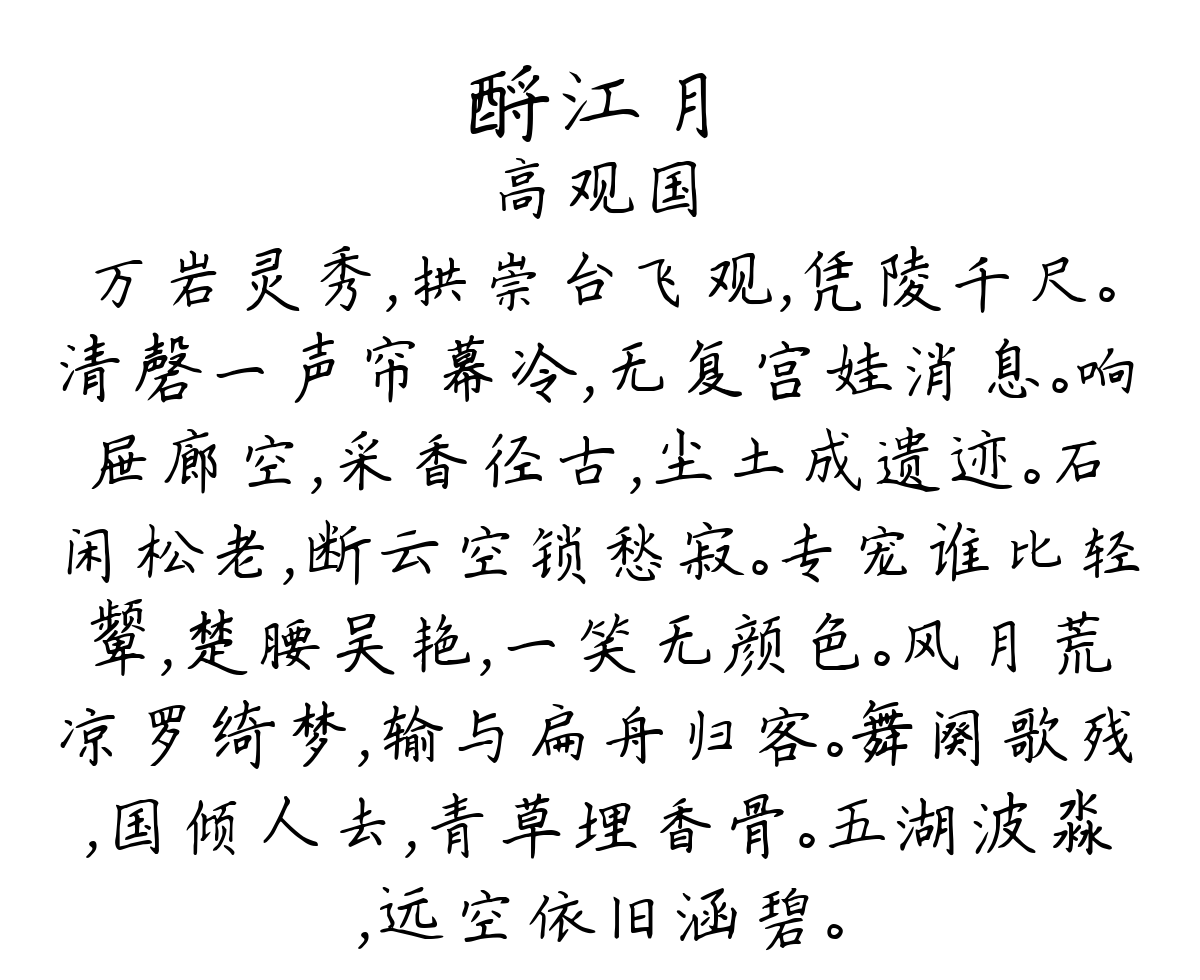 酹江月
高观国
万岩灵秀,拱崇台飞观,凭陵千尺。
清磬一声帘幕冷,无复宫娃消息。响
屉廊空,采香径古,尘土成遗迹。石
闲松老,断云空锁愁寂。专宠谁比轻
颦,楚腰吴艳,一笑无颜色。风月荒
凉罗绮梦,输与扁舟归客。舞阕歌残
,国倾人去,青草埋香骨。五湖波淼
,远空依旧涵碧。